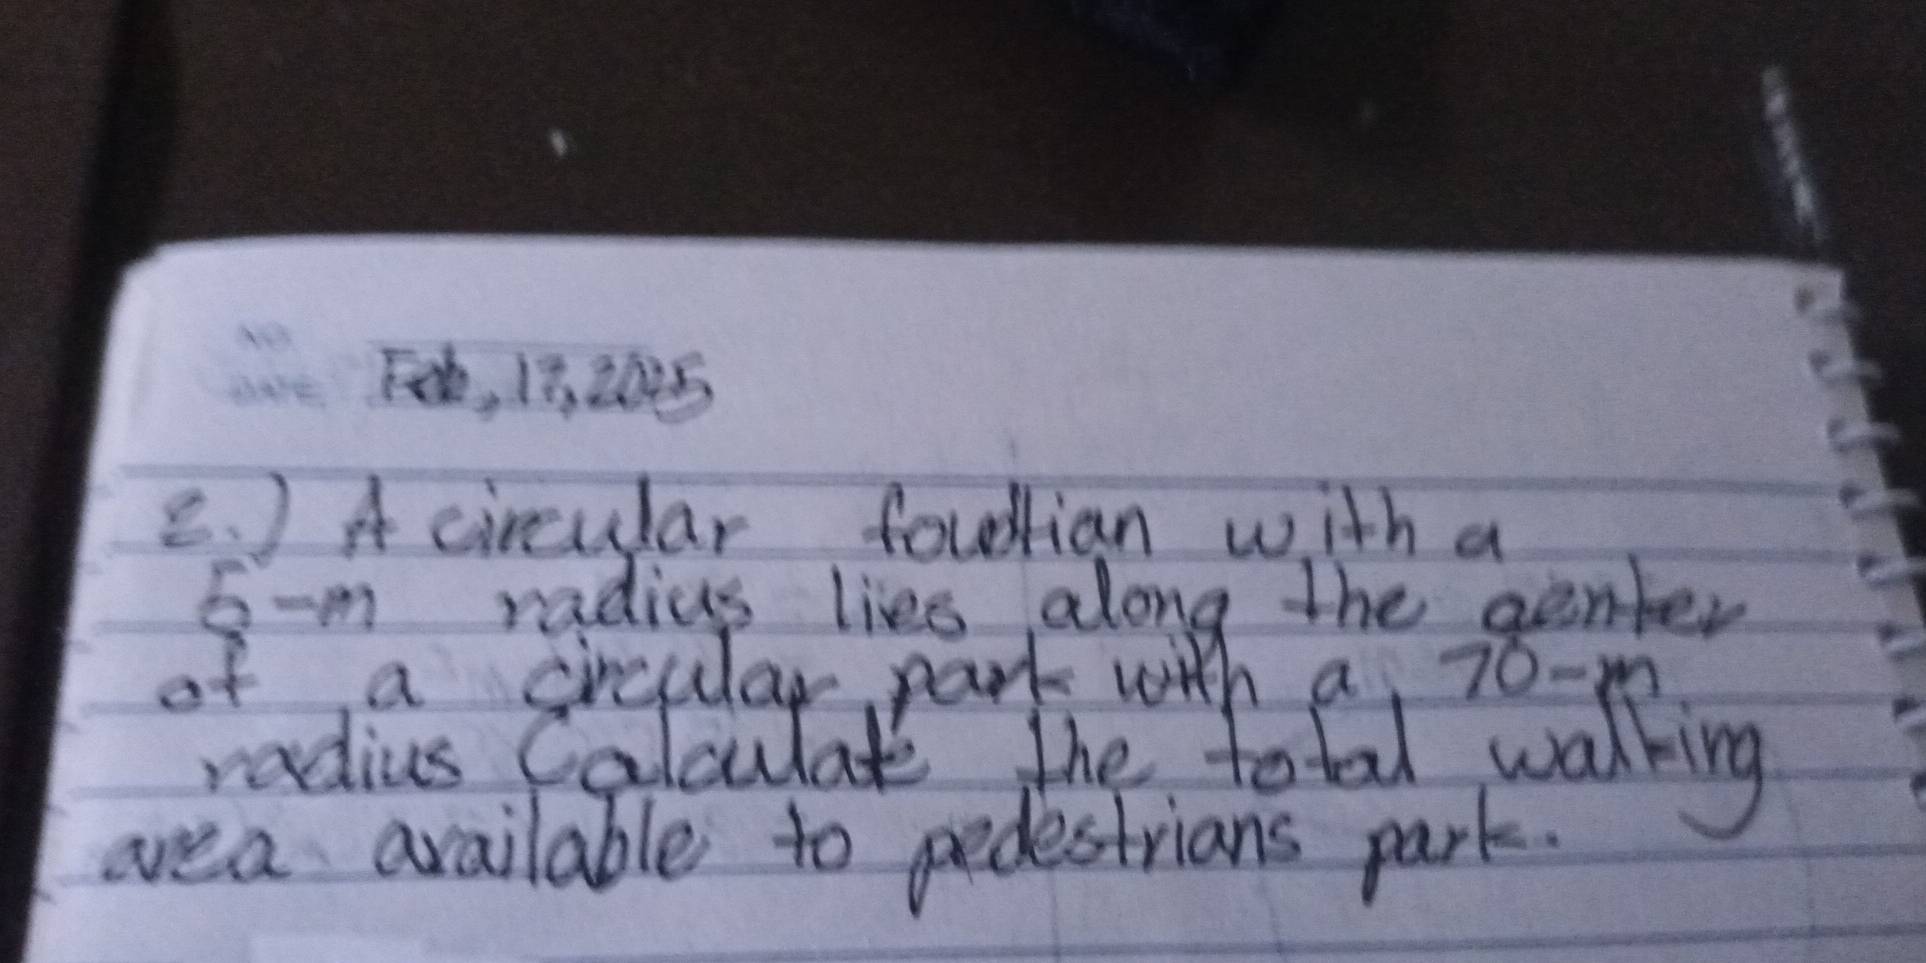 NO
DATE Feb, 17, 2025
2.) A circular foudtian with a
5-m radius lies along the genter
of a circular park with a 70-m
radius Calculate the total walking
area available to pedestrians park.